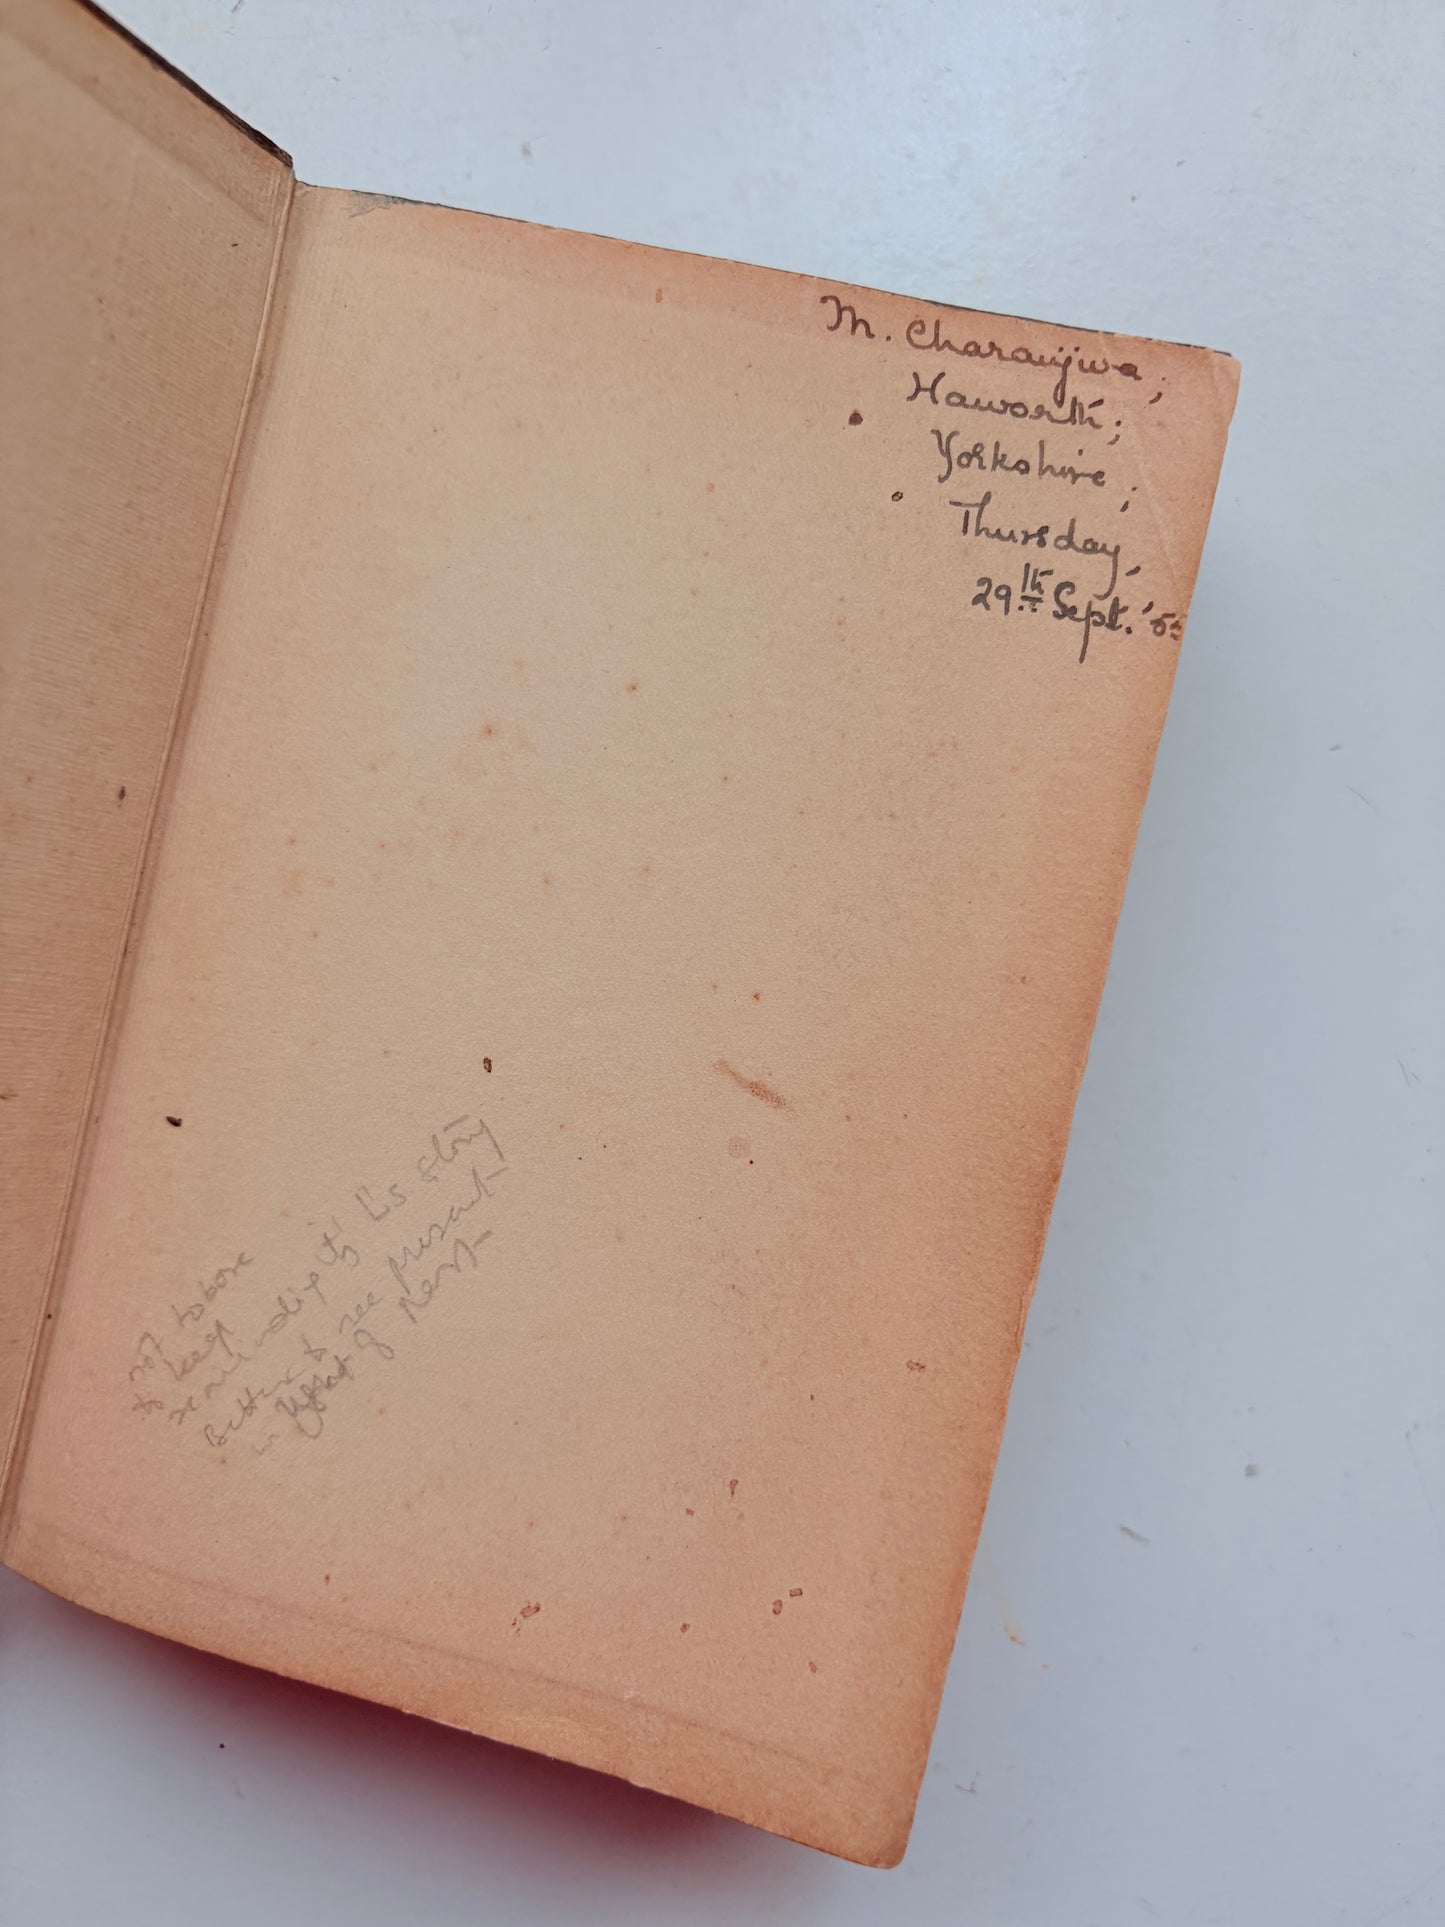 M. Charanjiva;
Haworth;
Yorkshire;
Thursday,
29th Sept. '55
not to bore
to keep
reminding of his story
Better to see present
in light of Past